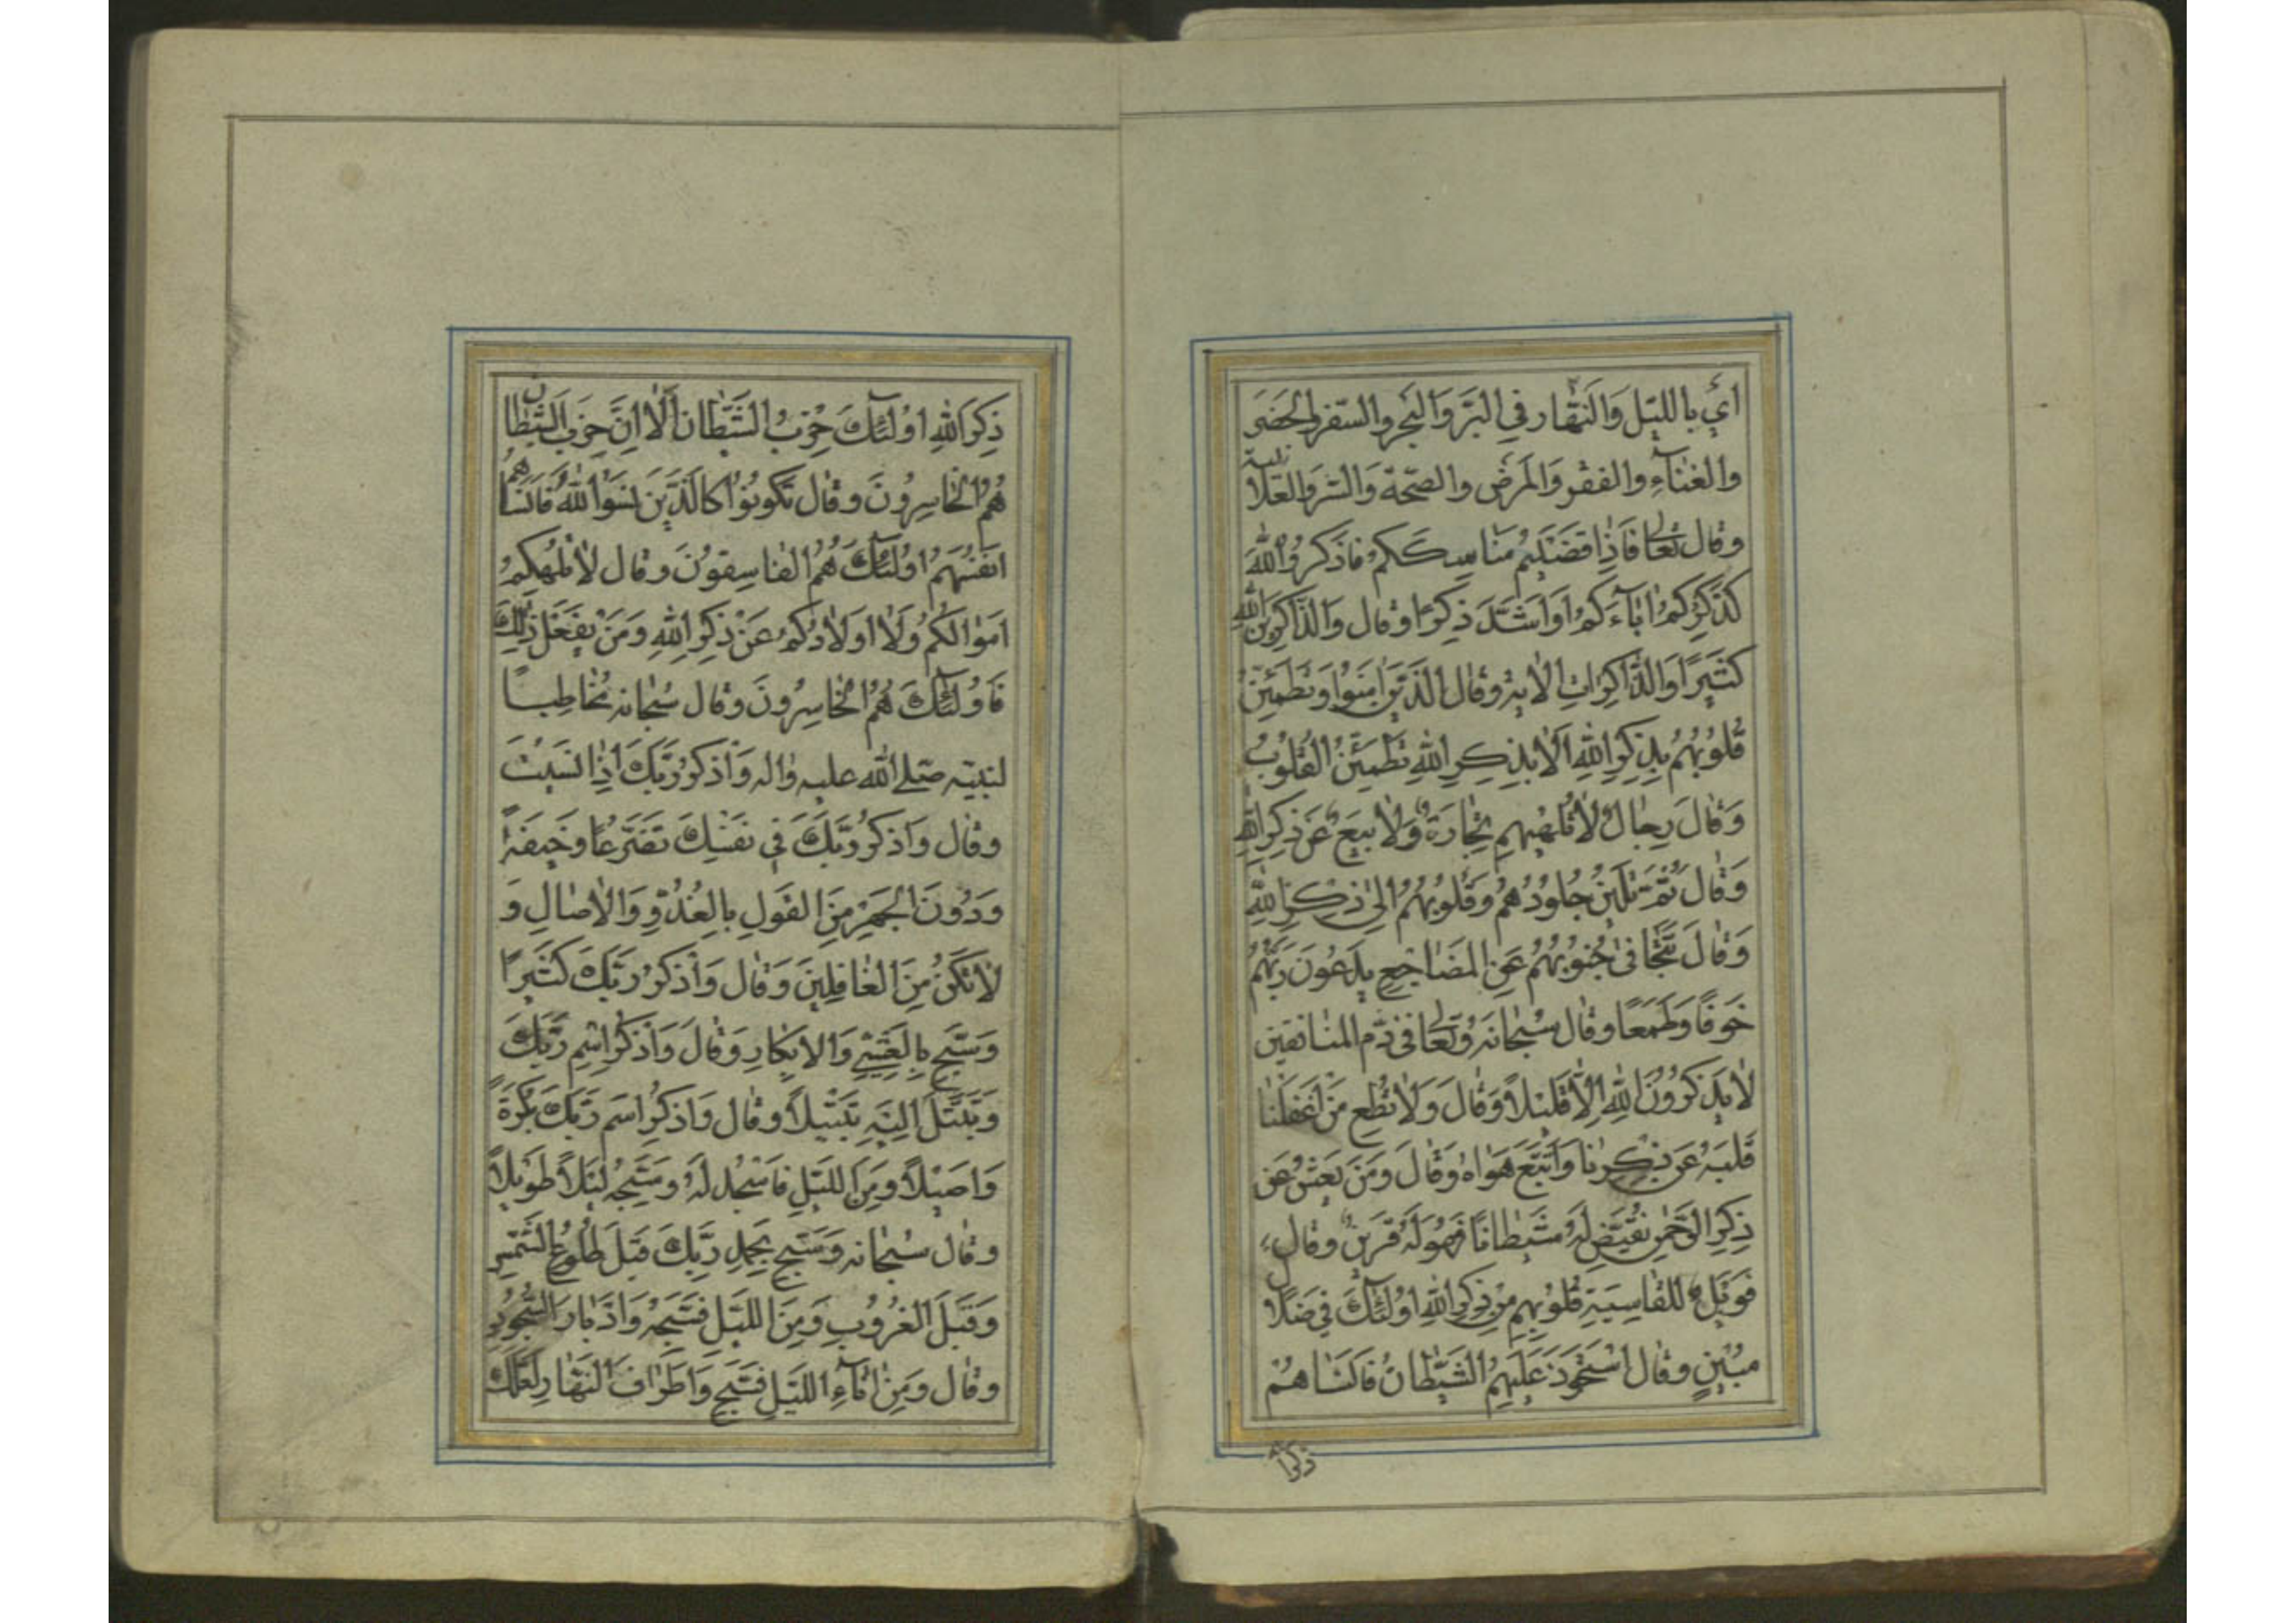 اَيْ بِاللَّيْلِ وَالنَّهَارِ فِي الْبَرِّ وَالْبَحْرِ وَالسَّفَرِ وَالْحَضَرِ
وَالْغِنَاءِ وَالْفَقْرِ وَالْمَرَضِ وَالصِّحَّةِ وَالسِّرِّ وَالْعَلَانِيَةِ
وَقَالَ تَعَالَى فَاِذَا قَضَيْتُمْ مَنَاسِكَكُمْ فَاذْكُرُوا اللّٰهَ
كَذِكْرِكُمْ اٰبَاءَكُمْ اَوْ اَشَدَّ ذِكْرًا وَقَالَ وَالذَّاكِرِينَ اللّٰهَ
كَثِيرًا وَالذَّاكِرَاتِ الْاٰيَةَ وَقَالَ الَّذِينَ اٰمَنُوا وَتَطْمَئِنُّ
قُلُوبُهُمْ بِذِكْرِ اللّٰهِ اَلَا بِذِكْرِ اللّٰهِ تَطْمَئِنُّ الْقُلُوبُ
وَقَالَ رِجَالٌ لَا تُلْهِيهِمْ تِجَارَةٌ وَلَا بَيْعٌ عَنْ ذِكْرِ اللّٰهِ
وَقَالَ ثُمَّ تَلِينُ جُلُودُهُمْ وَقُلُوبُهُمْ اِلٰى ذِكْرِ اللّٰهِ
وَقَالَ تَتَجَافٰى جُنُوبُهُمْ عَنِ الْمَضَاجِعِ يَدْعُونَ رَبَّهُمْ
خَوْفًا وَطَمَعًا وَقَالَ سُبْحَانَهُ وَتَعَالَى فِي ذَمِّ الْمُنَافِقِينَ
لَا يَذْكُرُونَ اللّٰهَ اِلَّا قَلِيلًا وَقَالَ وَلَا تُطِعْ مَنْ اَغْفَلْنَا
قَلْبَهُ عَنْ ذِكْرِنَا وَاتَّبَعَ هَوَاهُ وَقَالَ وَمَنْ يَعْشُ عَنْ
ذِكْرِ الرَّحْمٰنِ نُقَيِّضْ لَهُ شَيْطَانًا فَهُوَ لَهُ قَرِينٌ وَقَالَ
فَوَيْلٌ لِلْقَاسِيَةِ قُلُوبُهُمْ مِنْ ذِكْرِ اللّٰهِ اُولٰئِكَ فِي ضَلَالٍ
مُبِينٍ وَقَالَ اسْتَحْوَذَ عَلَيْهِمُ الشَّيْطَانُ فَاَنْسَاهُمْ
ذِكْرَ
ذِكْرَ اللّٰهِ اُولٰئِكَ حِزْبُ الشَّيْطَانِ اَلَا اِنَّ حِزْبَ الشَّيْطَانِ
هُمُ الْخَاسِرُونَ وَقَالَ تَكُونُوا كَالَّذِينَ نَسُوا اللّٰهَ فَاَنْسَاهُمْ
اَنْفُسَهُمْ اُولٰئِكَ هُمُ الْفَاسِقُونَ وَقَالَ لَا تُلْهِكُمْ
اَمْوَالُكُمْ وَلَا اَوْلَادُكُمْ عَنْ ذِكْرِ اللّٰهِ وَمَنْ يَفْعَلْ ذٰلِكَ
فَاُولٰئِكَ هُمُ الْخَاسِرُونَ وَقَالَ سُبْحَانَهُ مُخَاطِبًا
لنبيّه صلى الله عليه واله وَاذْكُرْ رَبَّكَ اِذَا نَسِيتَ
وَقَالَ وَاذْكُرْ رَبَّكَ فِي نَفْسِكَ تَضَرُّعًا وَخِيفَةً
وَدُونَ الْجَهْرِ مِنَ الْقَوْلِ بِالْغُدُوِّ وَالْاٰصَالِ وَ
لَا تَكُنْ مِنَ الْغَافِلِينَ وَقَالَ وَاذْكُرْ رَبَّكَ كَثِيرًا
وَسَبِّحْ بِالْعَشِيِّ وَالْاِبْكَارِ وَقَالَ وَاذْكُرِ اسْمَ رَبِّكَ
وَتَبَتَّلْ اِلَيْهِ تَبْتِيلًا وَقَالَ وَاذْكُرِ اسْمَ رَبِّكَ بُكْرَةً
وَاَصِيلًا وَمِنَ اللَّيْلِ فَاسْجُدْ لَهُ وَسَبِّحْهُ لَيْلًا طَوِيلًا
وَقَالَ سُبْحَانَهُ وَسَبِّحْ بِحَمْدِ رَبِّكَ قَبْلَ طُلُوعِ الشَّمْسِ
وَقَبْلَ الْغُرُوبِ وَمِنَ اللَّيْلِ فَسَبِّحْهُ وَاَدْبَارَ السُّجُودِ
وَقَالَ وَمِنْ اٰنَاءِ اللَّيْلِ فَسَبِّحْ وَاَطْرَافَ النَّهَارِ لَعَلَّكَ